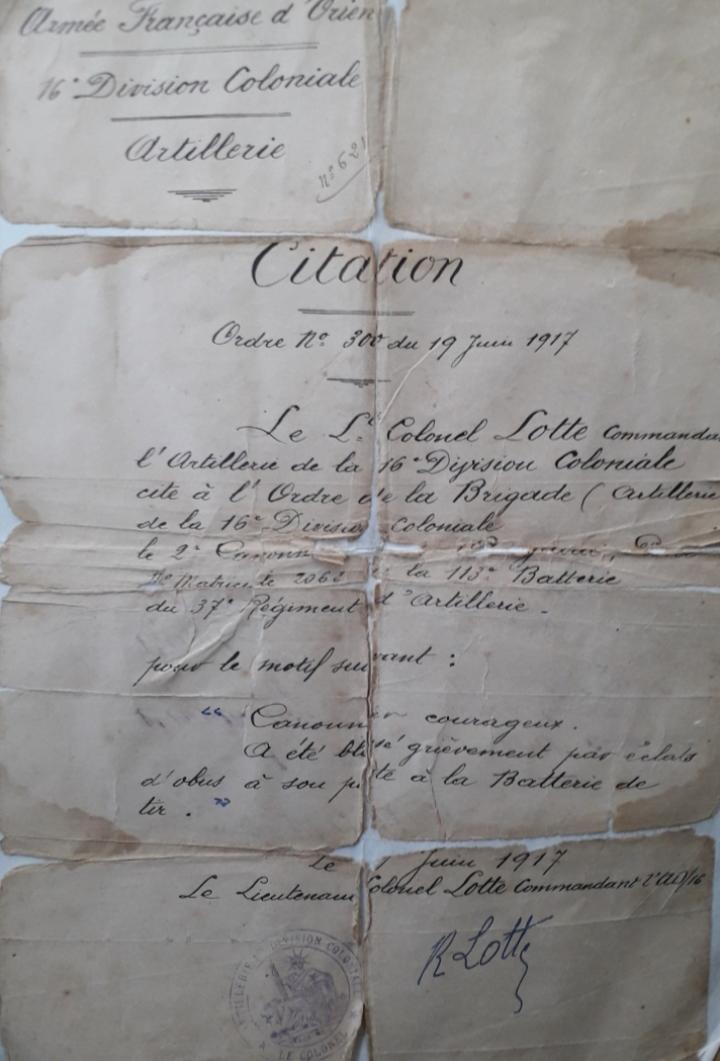 Armée Française d'Orien
16e Division Coloniale
Artillerie
No 621
Citation
Ordre No 300 du 19 Juin 1917
Le Lt Colonel Lotte Commanda
l'Artillerie de la 16e Division Coloniale
cite à l'Ordre de la Brigade (Artillerie
de la 16e Division Coloniale
le 2e Canonn
No Matricule 2062 la 113e Batterie
du 37e Régiment d'Artillerie.
pour le motif suivant :
“ Canonnier courageux.
A été blessé grièvement par éclats
d'obus à son poste à la Batterie de
tir. ”
Le 1 Juin 1917
Le Lieutenant Colonel Lotte Commandant l'AD/16
R Lotte
ARTILLERIE DIVISION COLONIALE
LE COLONEL